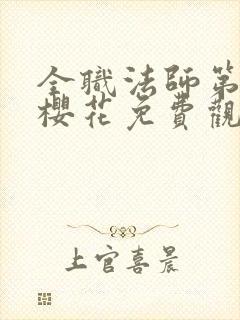 全職法師第
櫻花免費觀
上官喜晨